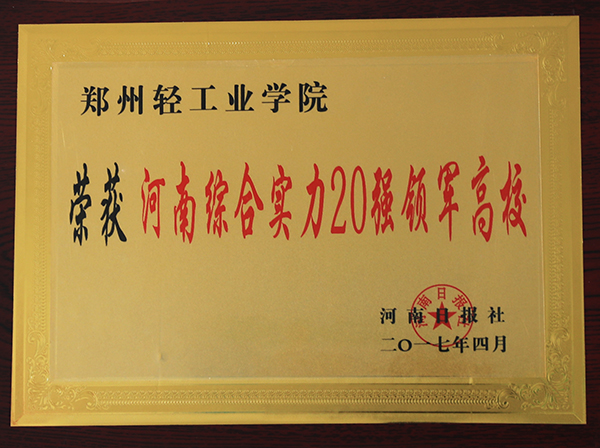 郑州轻工业学院
荣获 河南综合实力20强领军高校
河南日报社
二〇一七年四月
河南日报社